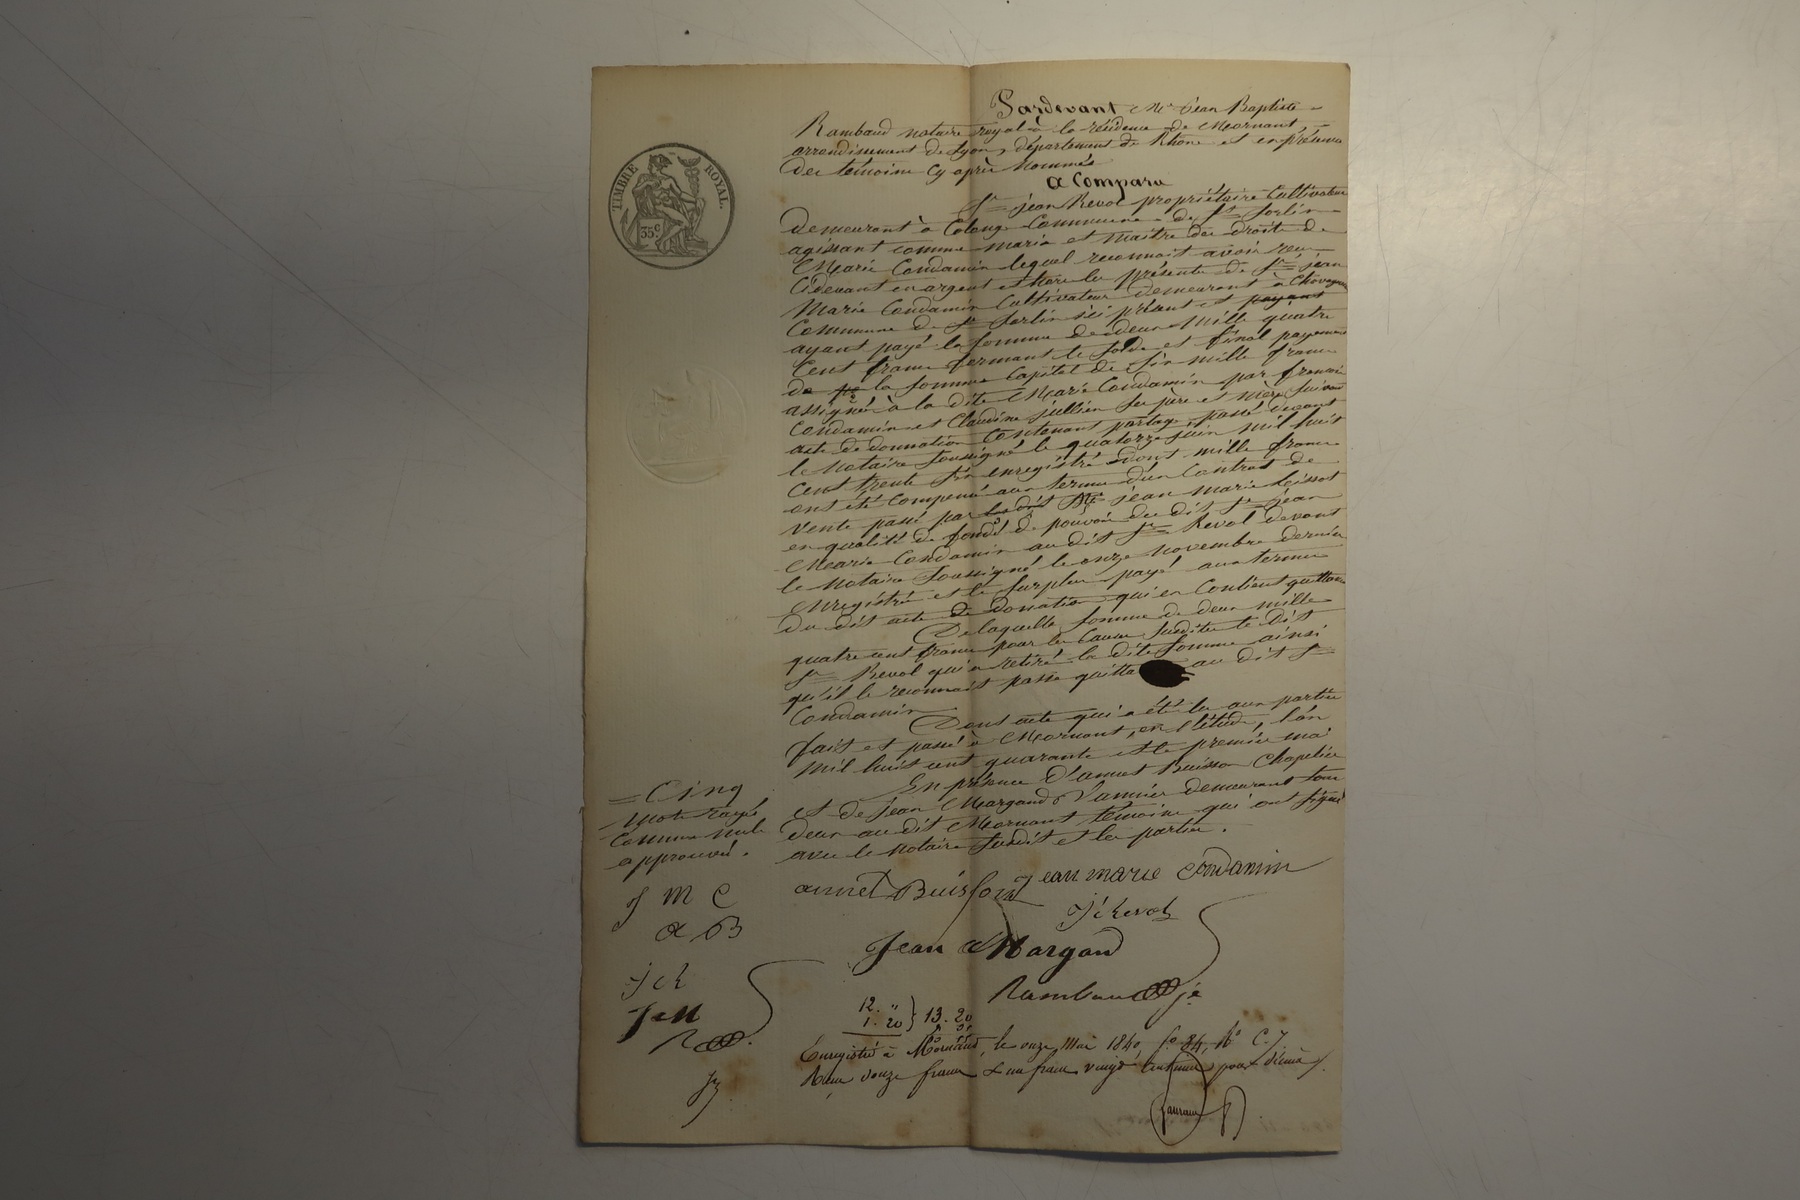 TIMBRE ROYAL.
35c
Pardevant Me Jean Baptiste
Rambaud notaire royal à la résidence de Mornant,
arrondissement de Lyon, département du Rhône et en présence
des témoins cy après nommés
a Comparu
Sr jean Revol propriétaire Cultivateur
demeurant à Colenge Commune de St Sorlin
agissant comme marié et maitre des droits de
Marie Condamin lequel reconnait avoir reçu
Cidevant en argent et hors les présentes de Sr jean
Marie Condamin Cultivateur demeurant à
Commune de St Sorlin ici présent et payant
ayant payé la somme de deux mille quatre
Cent francs formant le solde et final payement
de la somme Capital de six mille francs
assignée à la dite Marie Condamin par francois
Condamin et Claudine jullien ses père et mère suivant
acte de donnation Contenant partage passé devant
le Notaire soussigné le quatorze juin mil huit
Cent trente six enregistré dont mille francs
ont été compensés aux termes d'un Contrat de
vente passé par jean marie
en qualité de fondé de pouvoir du dit Sr jean
Marie Condamin au dit Sr Revol devant
le Notaire Soussigné le onze novembre dernier
enregistré et le surplus payé aux termes
du dit acte de donation qui en Contient quittance
De laquelle somme de deux mille
quatre cent francs pour les causes susdites le dit
Sr Revol qui a retiré la dite somme ainsi
qu'il le reconnait passe quitta au dit Sr
Condamin
Dont acte qui a été lu aux parties
fait et passé à Mornant, en l'étude, l'an
mil huit cent quarante et le premier mai
En présence d'annet Buisson Chapelier
et de jean Margand Vannier demeurant tous
deux au dit Mornant témoins qui ont signé
avec le notaire susdit et les parties.
= Cinq
mots rayés
comme nuls
approuvés.
J M C
a B
j c R
J M
annet Buisson jean marie Condamin
Revol
Jean Margand
Rambaud
12. "
1. 20 } 13. 20
Enregistré à Mornant, le onze Mai 1840, fo 34, Ro C. 7
Reçu douze francs & un franc vingt Centimes pour dixième